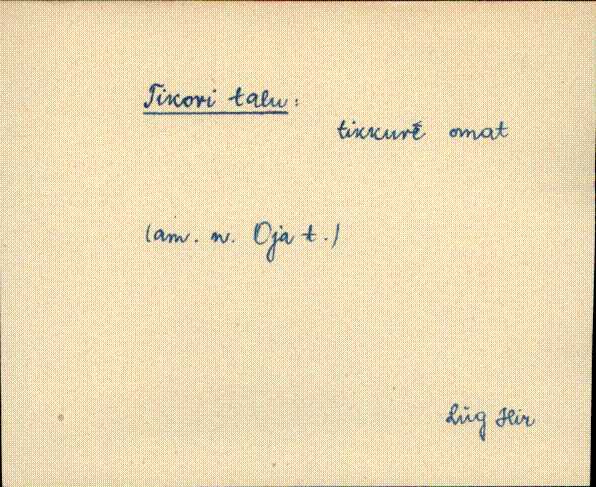 Tikori talu:
tikkurē omat
(am. n. Oja t.)
Lüg Hir